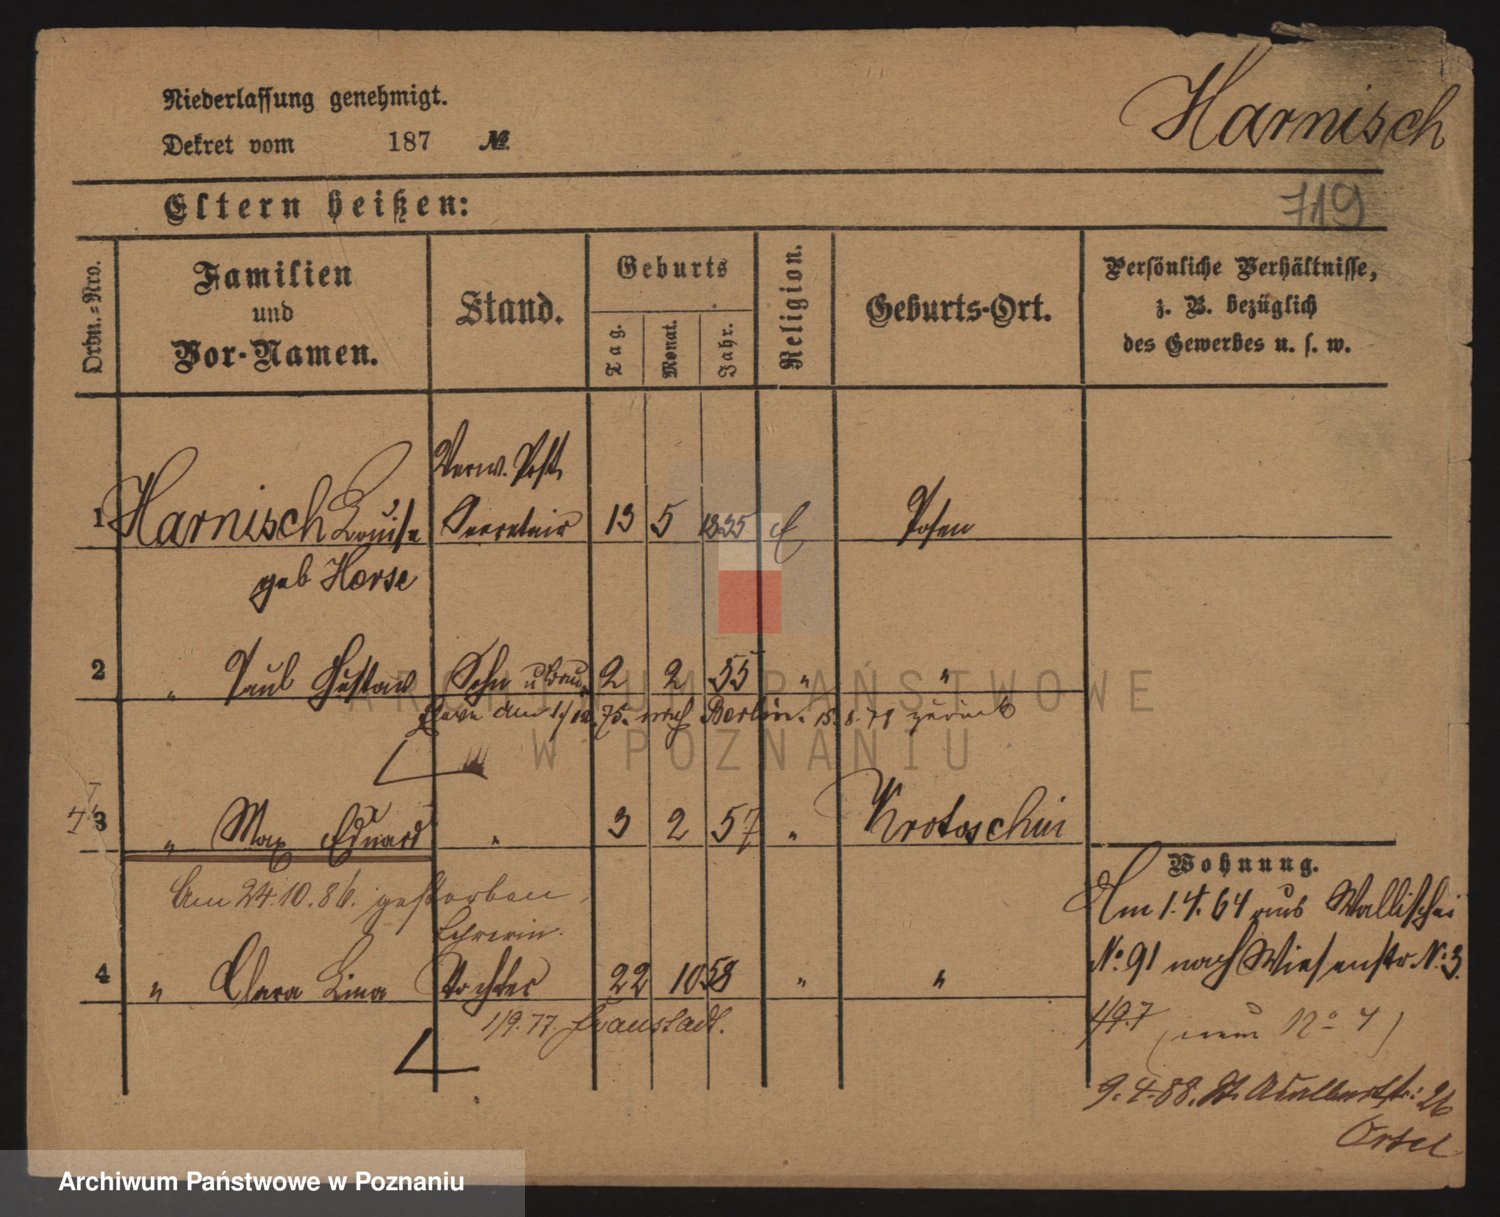 Niederlassung genehmigt.
Harnisch
Dekret vom 187 №
Eltern heißen:
719
Ordn.-Nro.
Familien
und
Vor-Namen.
Stand.
Geburts
Tag.
Monat.
Jahr.
Religion.
Geburts-Ort.
Persönliche Verhältnisse,
z. B. bezüglich
des Gewerbes u. s. w.
Verw. Post
1 Harnisch Louise Secretair 13 5 1835 E Posen
geb Horse
2 " Paul Gustav Sohn 2 2 55 " "
am 1/10.75. nach Berlin. 15.8.78 zurück
3 " Max Eduard " 3 2 57 " Krotoschin
Am 24.10.86. gestorben
Lehrerin
4 " Clara Lina Tochter 22 10 58 " "
1/9.77. Fraustadt.
Wohnung.
Am 1.4.64 aus Wallischei
No. 91 nach Wiesenstr No. 3.
(neu No 4)
9.4.88. St. Adalbertstr: 26
ARCHIWUM PAŃSTWOWE
W POZNANIU
Archiwum Państwowe w Poznaniu